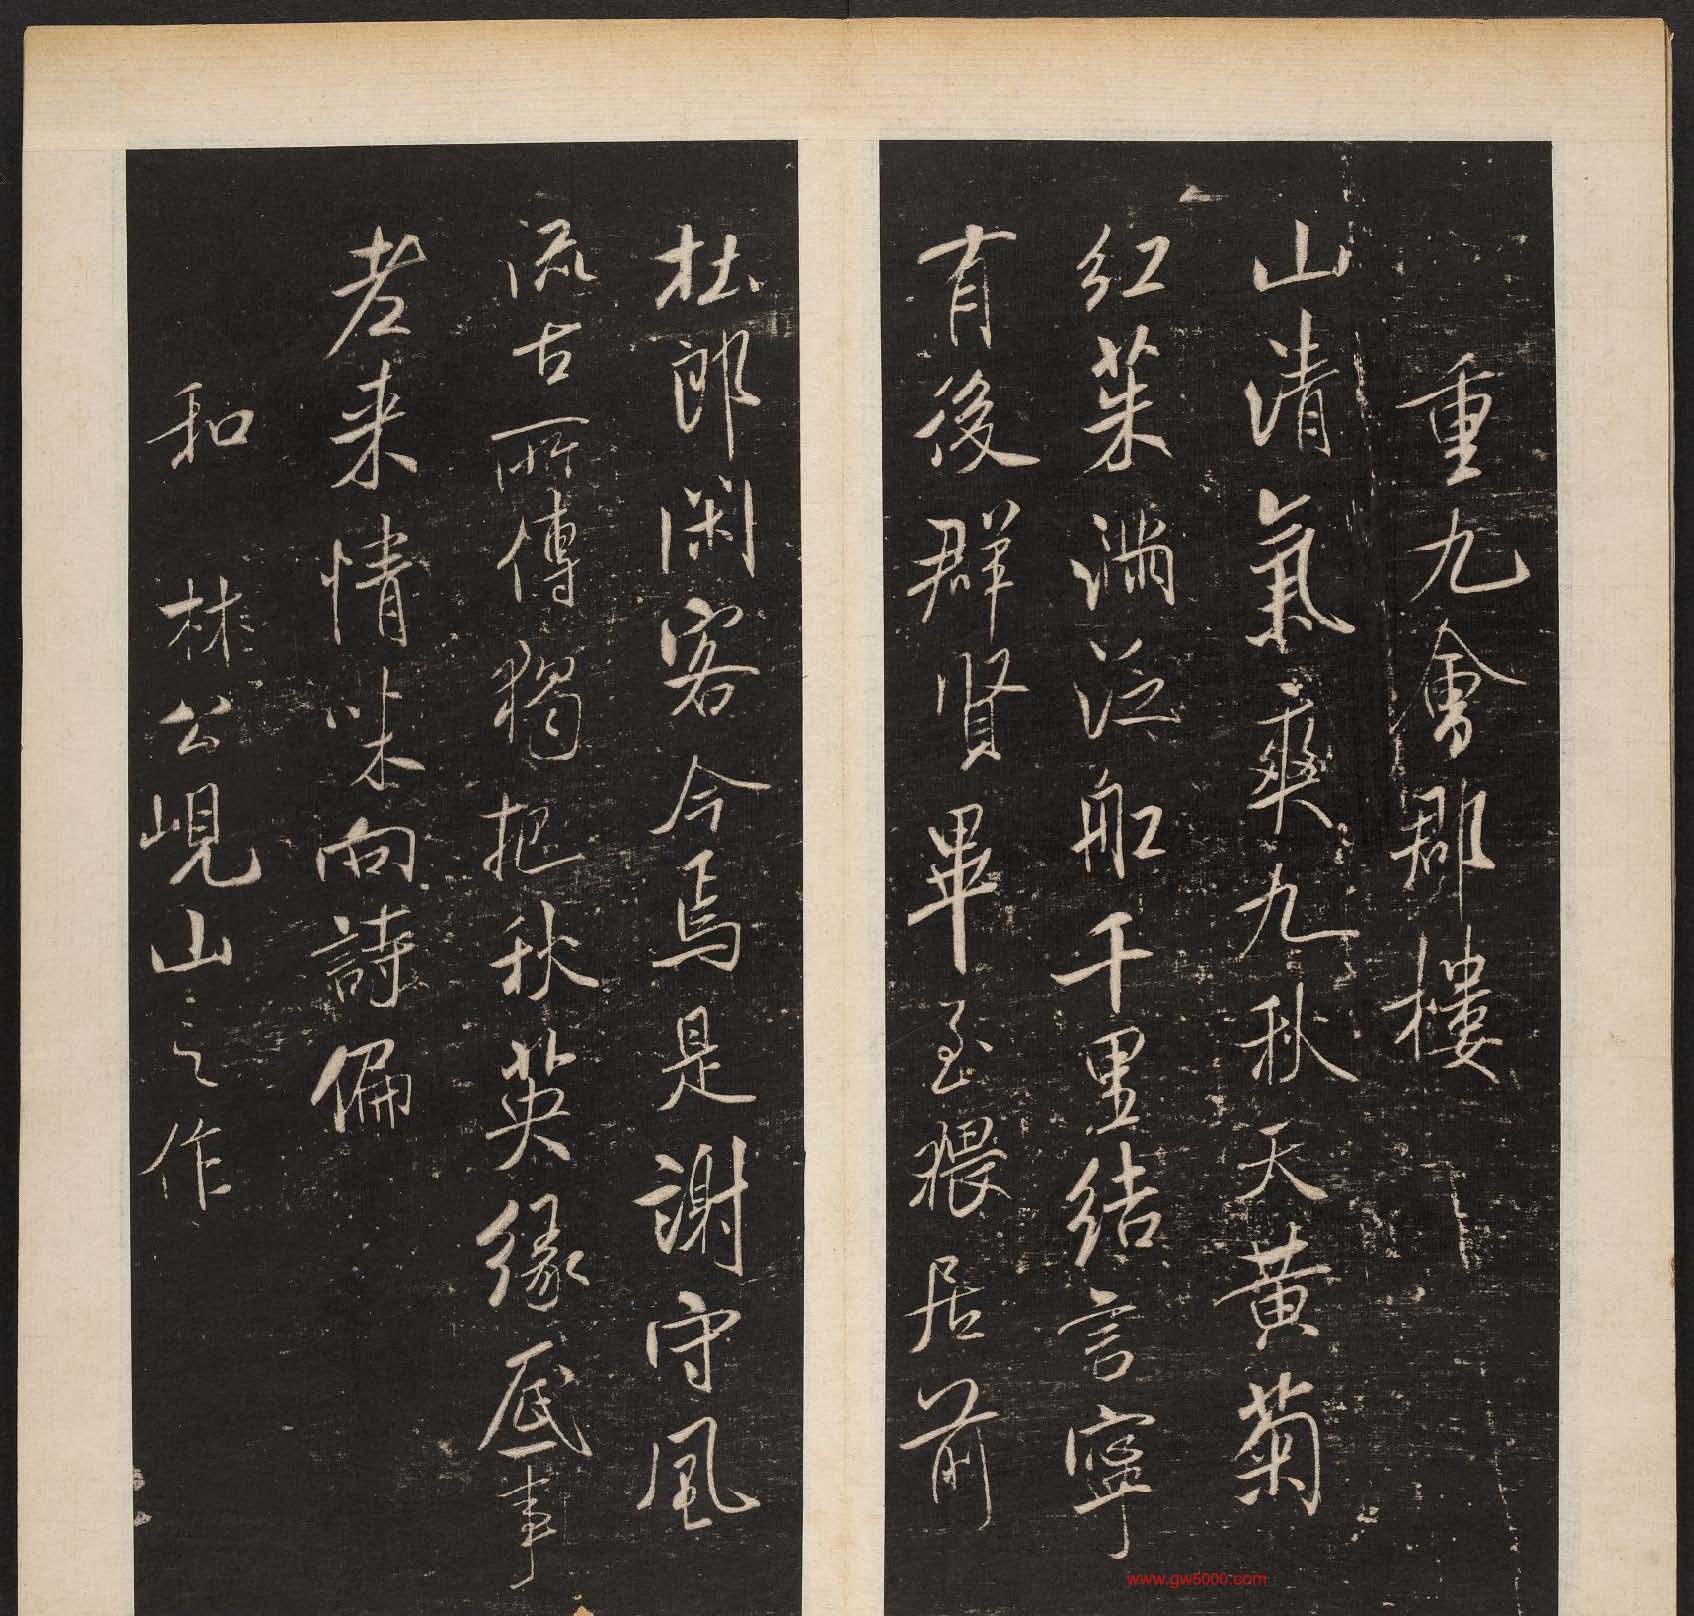 重九會郡樓
山清氣爽九秋天黄菊
紅茱滿泛船千里結言寧
有後群賢畢至猥居前
杜郎閑客今焉是謝守風
流古所傳獨把秋英緣底事
老来情味向詩偏
和林公峴山之作
www.gw5000.com